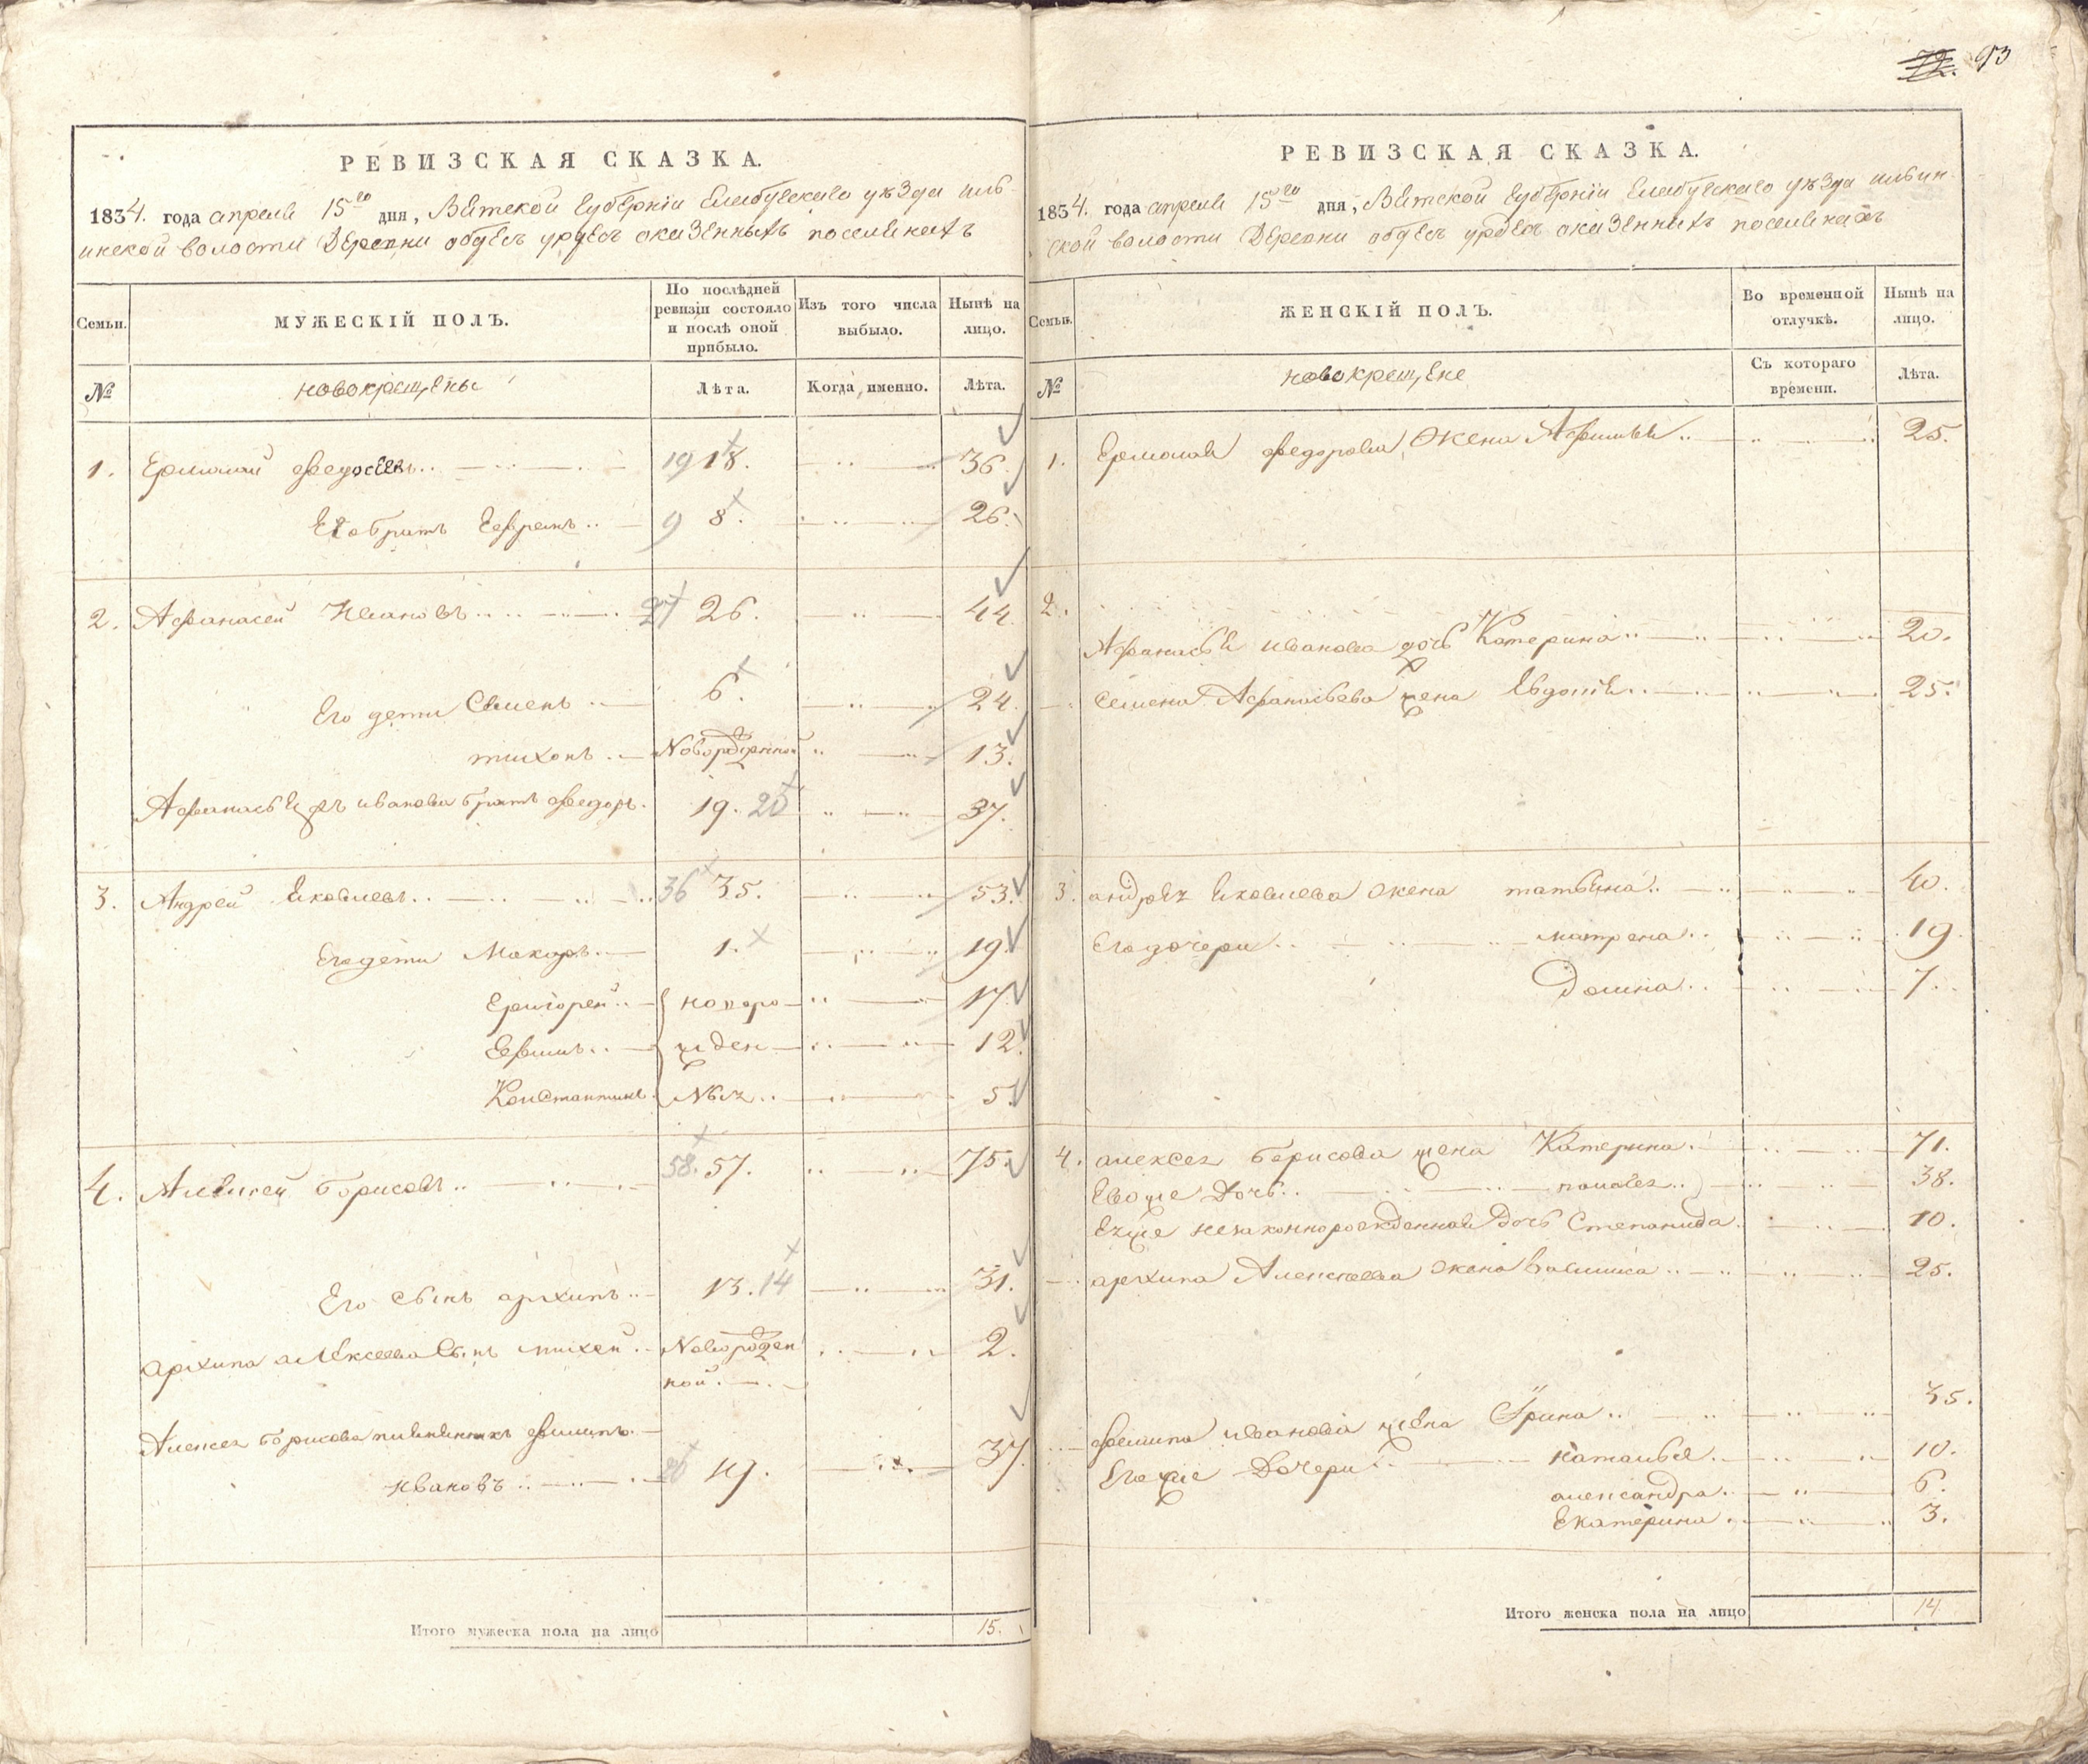 93
РЕВИЗСКАЯ СКАЗКА.
1834. года апреля 15го дня, Вятской Губерніи Елабугскаго уѣзда иль-
инской волости Деревни казенныхъ поселянахъ
Семьи.
МУЖЕСКІЙ ПОЛЪ.
По послѣдней ревизіи состояло и послѣ оной прибыло.
Изъ того числа выбыло.
Нынѣ на лицо.
№
новокрещены
Лѣта.
Когда именно.
Лѣта.
1. Ермолай 19 18. 36.
Его братъ Ефремъ 9 8. 26.
2. Афанасей Ивановъ 27 26. 44.
Его дети Семенъ 6. 24.
тихонъ Новорожденной 13.
иванова братъ федоръ. 19. 20 37.
3. Андрей Яковлевъ 36 35. 53.
Его дети Макаръ 1. 19.
Григорей новоро 17.
Ефимъ жден 12.
Константинъ ныхъ 5.
4. Алексей Борисовъ 58. 57. 75.
Его сынъ архипъ 13. 14 31.
архипа алексеева сынъ михей Новорожден 2.
ной
Алексея Борисова племянникъ филипъ
Ивановъ 20 19. 37.
Итого мужеска пола на лицо 15.
РЕВИЗСКАЯ СКАЗКА.
1834. года апреля 15го дня, Вятской Губерніи Елабугскаго уѣзда ильин-
ской волости Деревни казенныхъ поселянахъ
Семьи.
ЖЕНСКІЙ ПОЛЪ.
Во временной отлучкѣ.
Нынѣ на лицо.
№
новокрещене
Съ котораго времени.
Лѣта.
1. Ермолая федорова жена 25.
2.
Иванова дочь Катерина 20.
Семена Афанасьева жена Евдокія 25.
3. андрея Яковлева жена татьяна 40.
Его дочери матрена 19.
Домна 7.
4. алексея борисова жена Катерина 71.
Евоже Дочь 38.
незаконнорожденная Дочь Степанида 10.
архипа Алексеева жена Василиса 25.
филипа иванова жена Ірина 35.
Егоже Дочери наталья 10.
александра 6.
Екатерина 3.
Итого женска пола на лицо 14